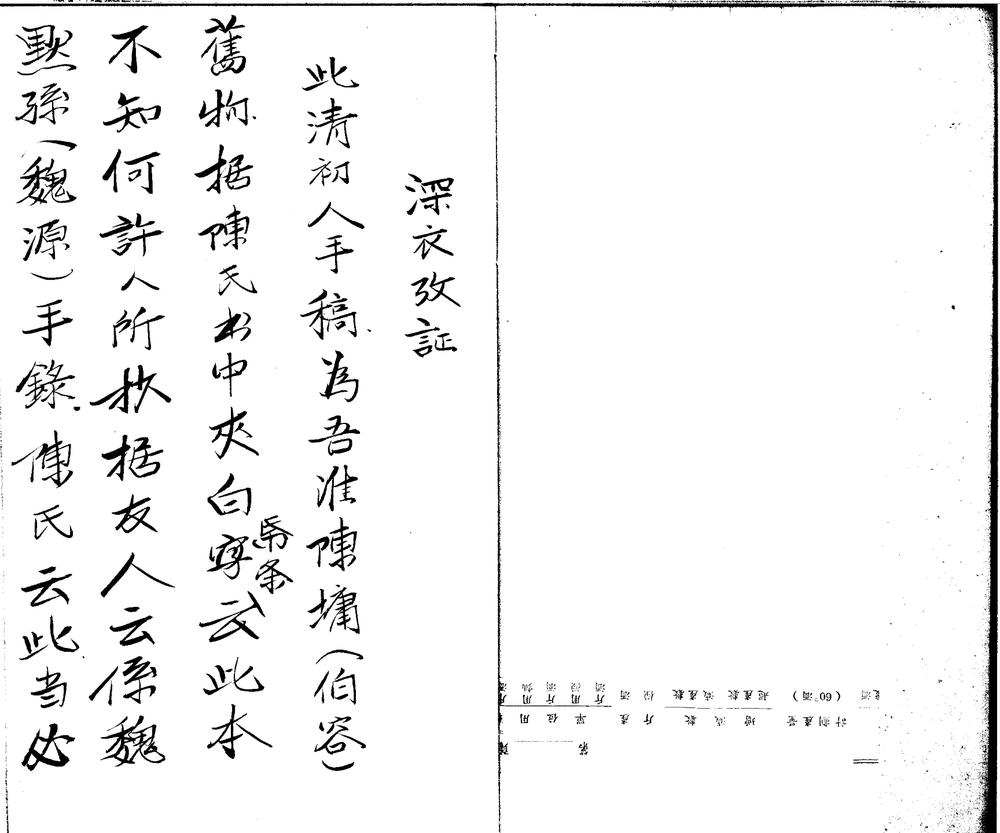 深衣攷証
此清初人手稿為吾淮陳墉(伯容)
舊物据陳氏书中夾白字帋条云此本
不知何許人所抄据友人云係魏
默孫(魏源)手錄.陳氏云此当必